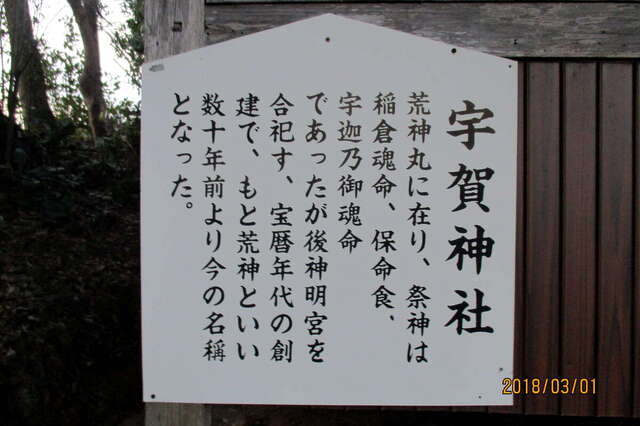 宇賀神社
荒神丸に在り、祭神は
稲倉魂命、保命食、
宇迦乃御魂命
であったが後神明宮を
合祀す、宝暦年代の創
建で、もと荒神といい
数十年前より今の名稱
となった。
2018/03/01